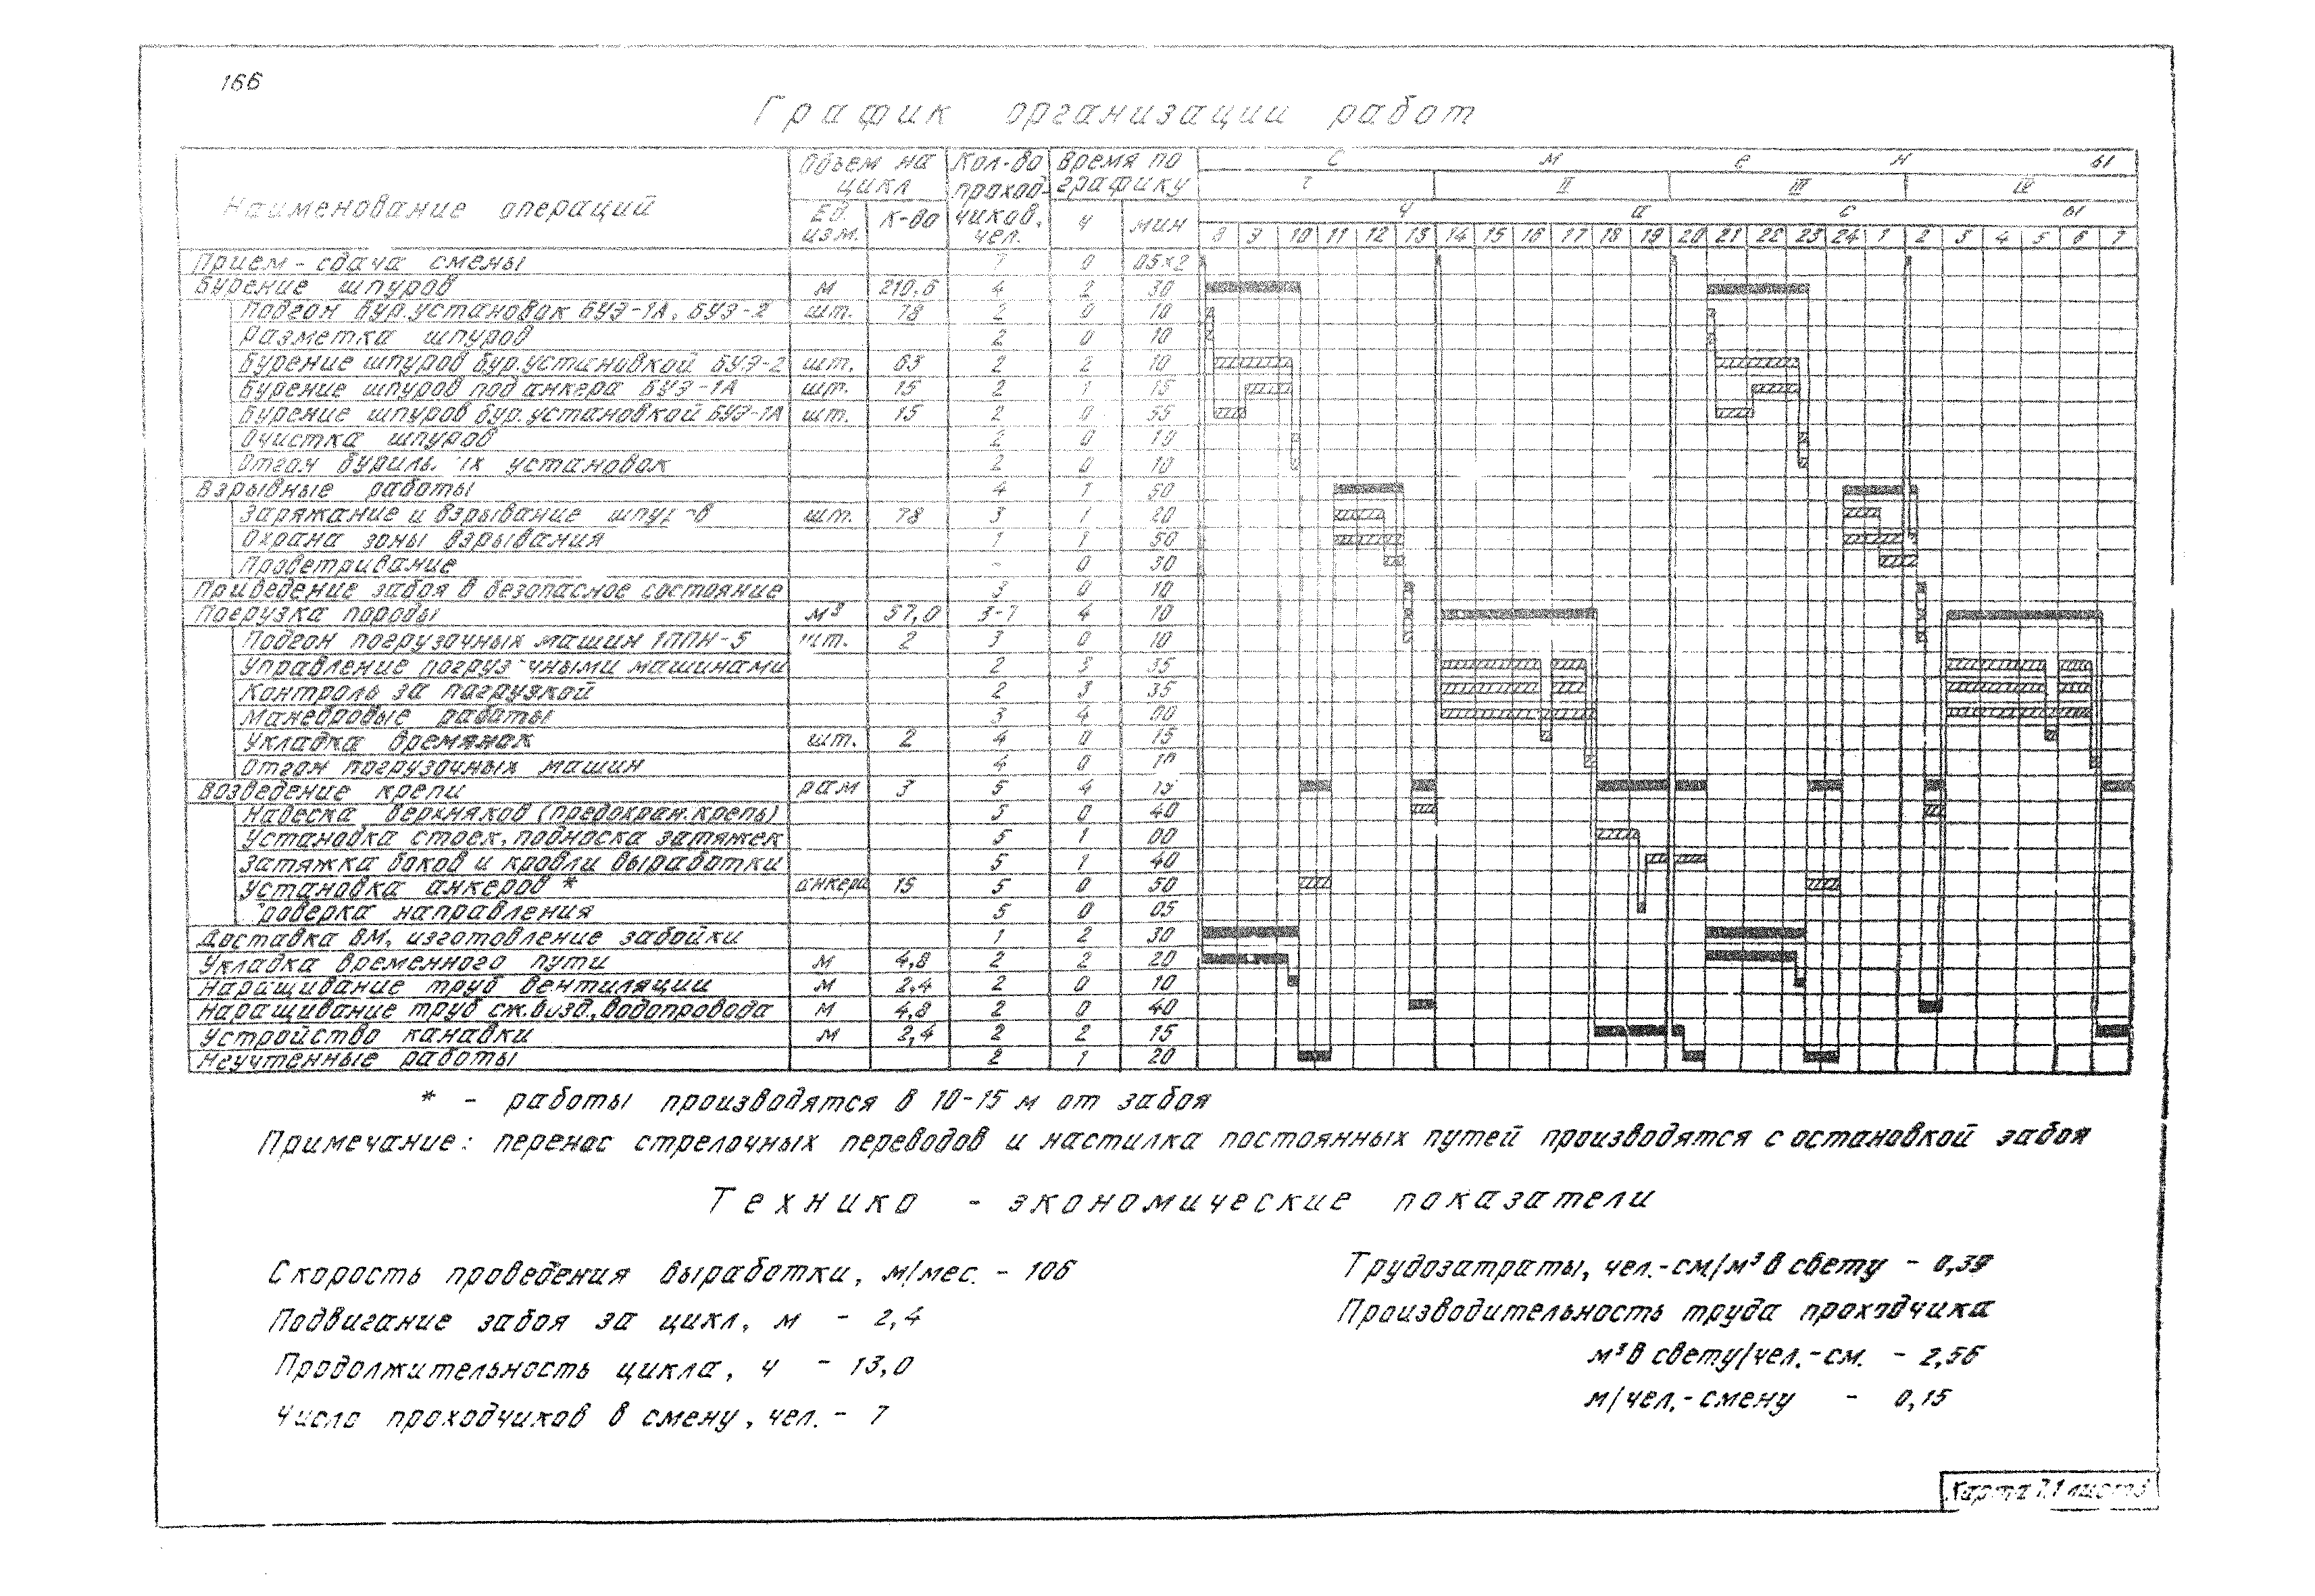 166
График организации работ
Наименование операций
Объем на цикл
Ед. изм.
К-во
Кол-во проход-чиков, чел.
Время по графику
ч
мин
С м е н ы
I II III IV
Ч а с ы
8 9 10 11 12 13 14 15 16 17 18 19 20 21 22 23 24 1 2 3 4 5 6 7
Прием-сдача смены 7 0 05×2
Бурение шпуров м 210,6 4 2 30
Подгон бур.установок БУЭ-1А, БУЭ-2 шт. 78 2 0 10
Разметка шпуров 2 0 10
Бурение шпуров бур.установкой БУЭ-2 шт. 63 2 2 10
Бурение шпуров под анкера БУЭ-1А шт. 15 2 1 15
Бурение шпуров бур.установкой БУЭ-1А шт. 15 2 0 55
Очистка шпуров 2 0 10
Отгон установок 2 0 10
Взрывные работы 4 1 50
Заряжание и взрывание шт. 78 3 1 20
Охрана зоны взрывания 1 1 50
Проветривание - 0 30
Приведение забоя в безопасное состояние 3 0 10
Погрузка породы м³ 57,0 3-7 4 10
Подгон погрузочных машин 1ППН-5 шт. 2 3 0 10
Управление машинами 2 3 35
Контроль за погрузкой 2 3 35
Маневровые работы 3 4 00
Укладка времянок шт. 2 4 0 15
Отгон погрузочных машин 4 0 10
Возведение крепи рам 3 5 4 15
Навеска верхняков (предохран. крепь) 5 0 40
Установка стоек, подноска затяжек 5 1 00
Затяжка боков и кровли выработки 5 1 40
Установка анкеров * анкера 15 5 0 50
роверка направления 5 0 05
Доставка ВМ, изготовление забойки 1 2 30
Укладка временного пути м 4,8 2 2 20
Наращивание труб вентиляции м 2,4 2 0 10
Наращивание труб сж.возд., водопровода м 4,8 2 0 40
Устройство канавки м 2,4 2 2 15
Неучтенные работы 2 1 20
* - работы производятся в 10-15 м от забоя
Примечание: перенос стрелочных переводов и настилка постоянных путей производятся с остановкой забоя
Технико - экономические показатели
Скорость проведения выработки, м/мес. - 106
Подвигание забоя за цикл, м - 2,4
Продолжительность цикла, ч - 13,0
Число проходчиков в смену, чел. - 7
Трудозатраты, чел.-см/м³ в свету - 0,39
Производительность труда проходчика
м³ в свету/чел.-см. - 2,56
м/чел.-смену - 0,15
Карта 7.1 лист 3